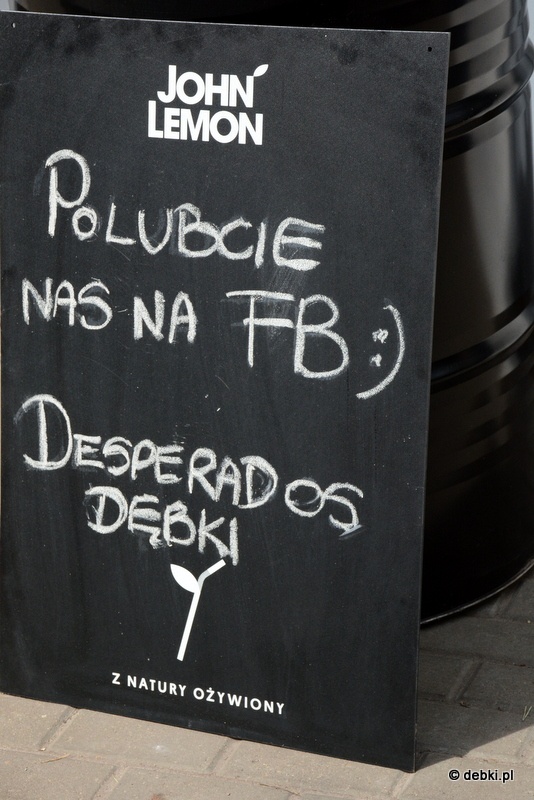 JOHN
LEMON
POLUBCIE
NAS NA FB :)
DESPERADOS
DĘBKI
Z NATURY OŻYWIONY
© debki.pl